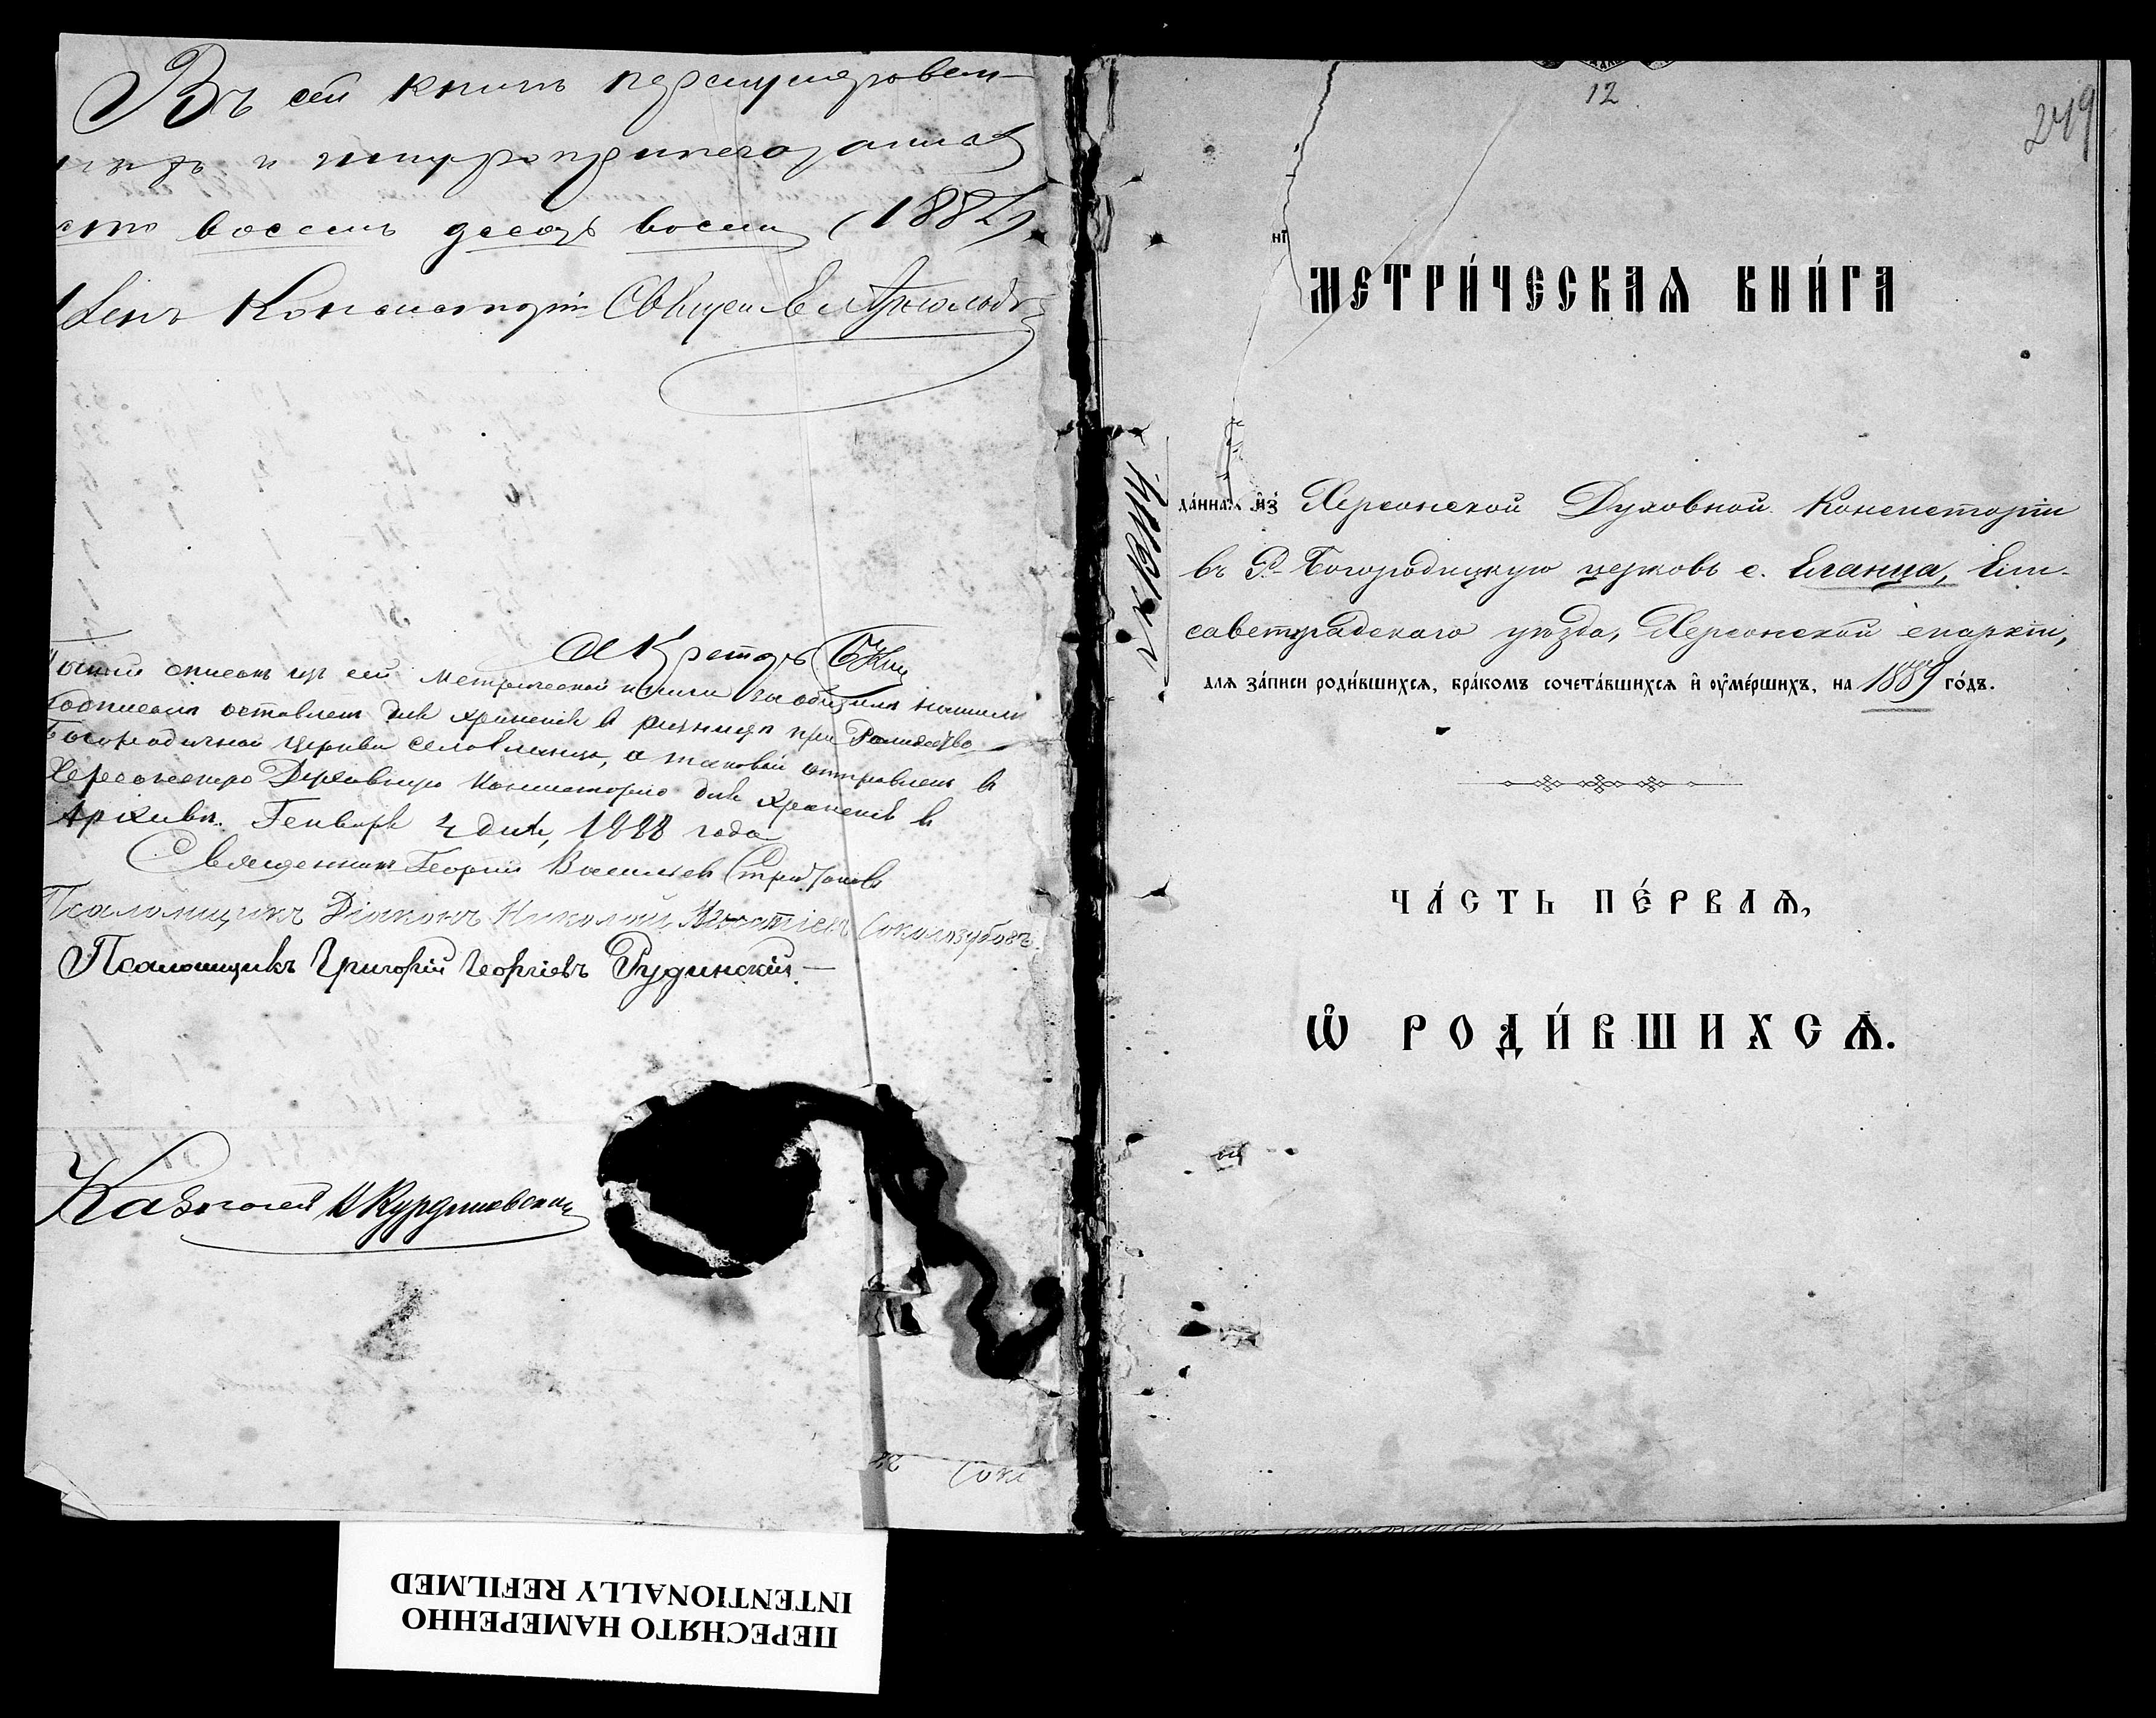 Въ сей книгѣ перенумерован-
и
сто восемь десятъ восемь (188
Членъ Консисторіи Священ
Секретарь
списокъ изъ сей метрической книги за общимъ нашимъ
подписомъ оставленъ для храненія въ ризницѣ при Рождество
Богородичной церкви села Еланца, а таковой отправленъ въ
Херсонскую Духовную Консисторію для храненія въ
Архивѣ. Генваря 4 дня, 1888 года
Священникъ Георгій Васильевъ
Псаломщикъ Діаконъ Николай Соколозубовъ.
Псаломщикъ Григорій Георгіевъ Рудинскій.
Казначей
12
249
МЕТРИ́ЧЕСКАѦ КНИ́ГА
да́ннаѧ и҆з̾ Херсонской Духовной Консисторіи
въ Р- Богородицкую церковь с. Еланца, Ели-
саветградскаго уѣзда, Херсонской епархіи,
длѧ за́писи роди́вшихсѧ, бра́комъ сочета́вшихсѧ и҆ ѹ҆ме́ршихъ, на 1889 го́дъ.
ЧА́СТЬ ПЕ́РВАѦ,
Ѡ҆ РОДИ́ВШИХСѦ.
ПЕРЕСНЯТО НАМЕРЕННО
INTENTIONALLY REFILMED